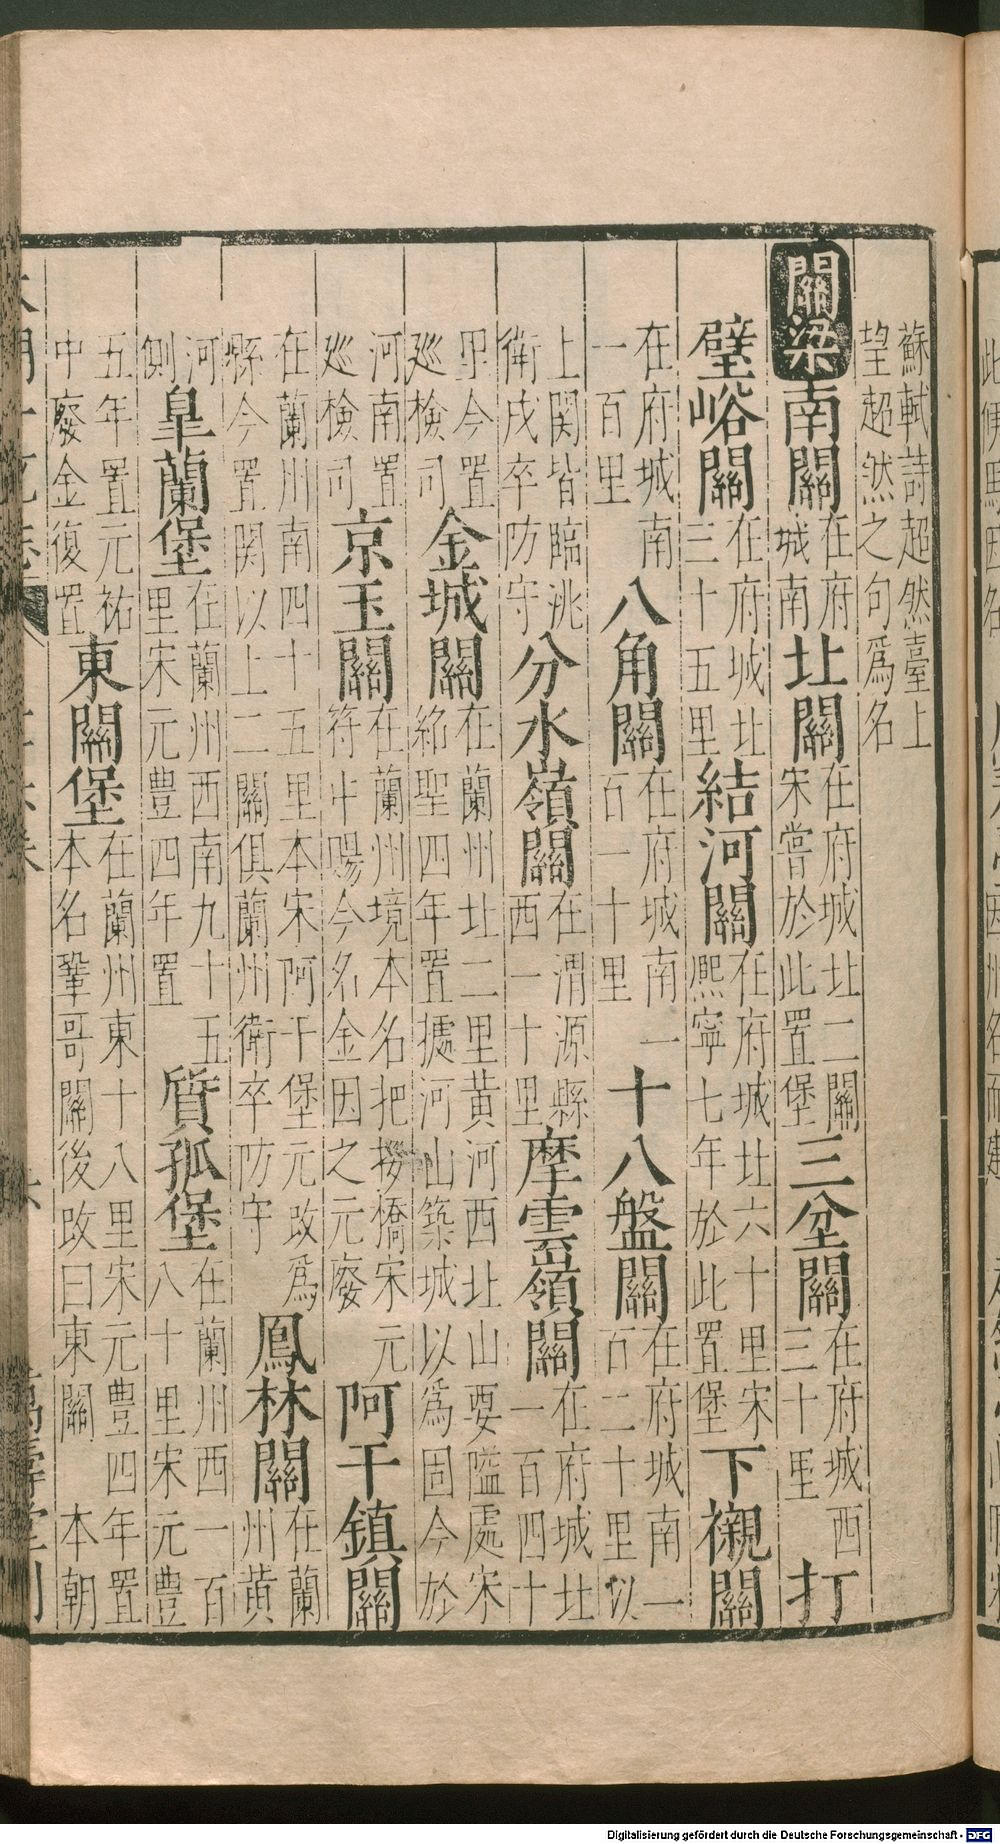 蘇軾詩超然臺上
望超然之句爲名
關梁南關在府城南北關在府城北二關宋嘗於此置堡三岔關在府城西三十里打
壁峪關在府城北三十五里結河關在府城北六十里宋熙寧七年於此置堡下襯關
在府城南一百里八角關在府城南一百一十里十八盤關在府城南一百二十里以
上関皆臨洮衛戍卒防守分水嶺關在渭源縣西一十里摩雲嶺關在府城北一百四十
里今置廵檢司金城關在蘭州北二里黄河西北山要嗌處宋紹聖四年置據河山築城以爲固今於
河南置廵檢司京玉關在蘭州境本名把拶橋宋元符中賜今名金因之元廢阿干鎮關
在蘭州南四十五里本宋阿干堡元改爲縣今置関以上二關俱蘭州衛卒防守鳳林關在蘭州黄
河側皐蘭堡在蘭州西南九十五里宋元豊四年置質孤堡在蘭州西一百八十里宋元豊
五年置元祐中廢金復置東關堡在蘭州東十八里宋元豊四年置本名鞏哥關後改曰東關 本朝
萬壽堂刊
Digitalisierung gefördert durch die Deutsche Forschungsgemeinschaft - DFG